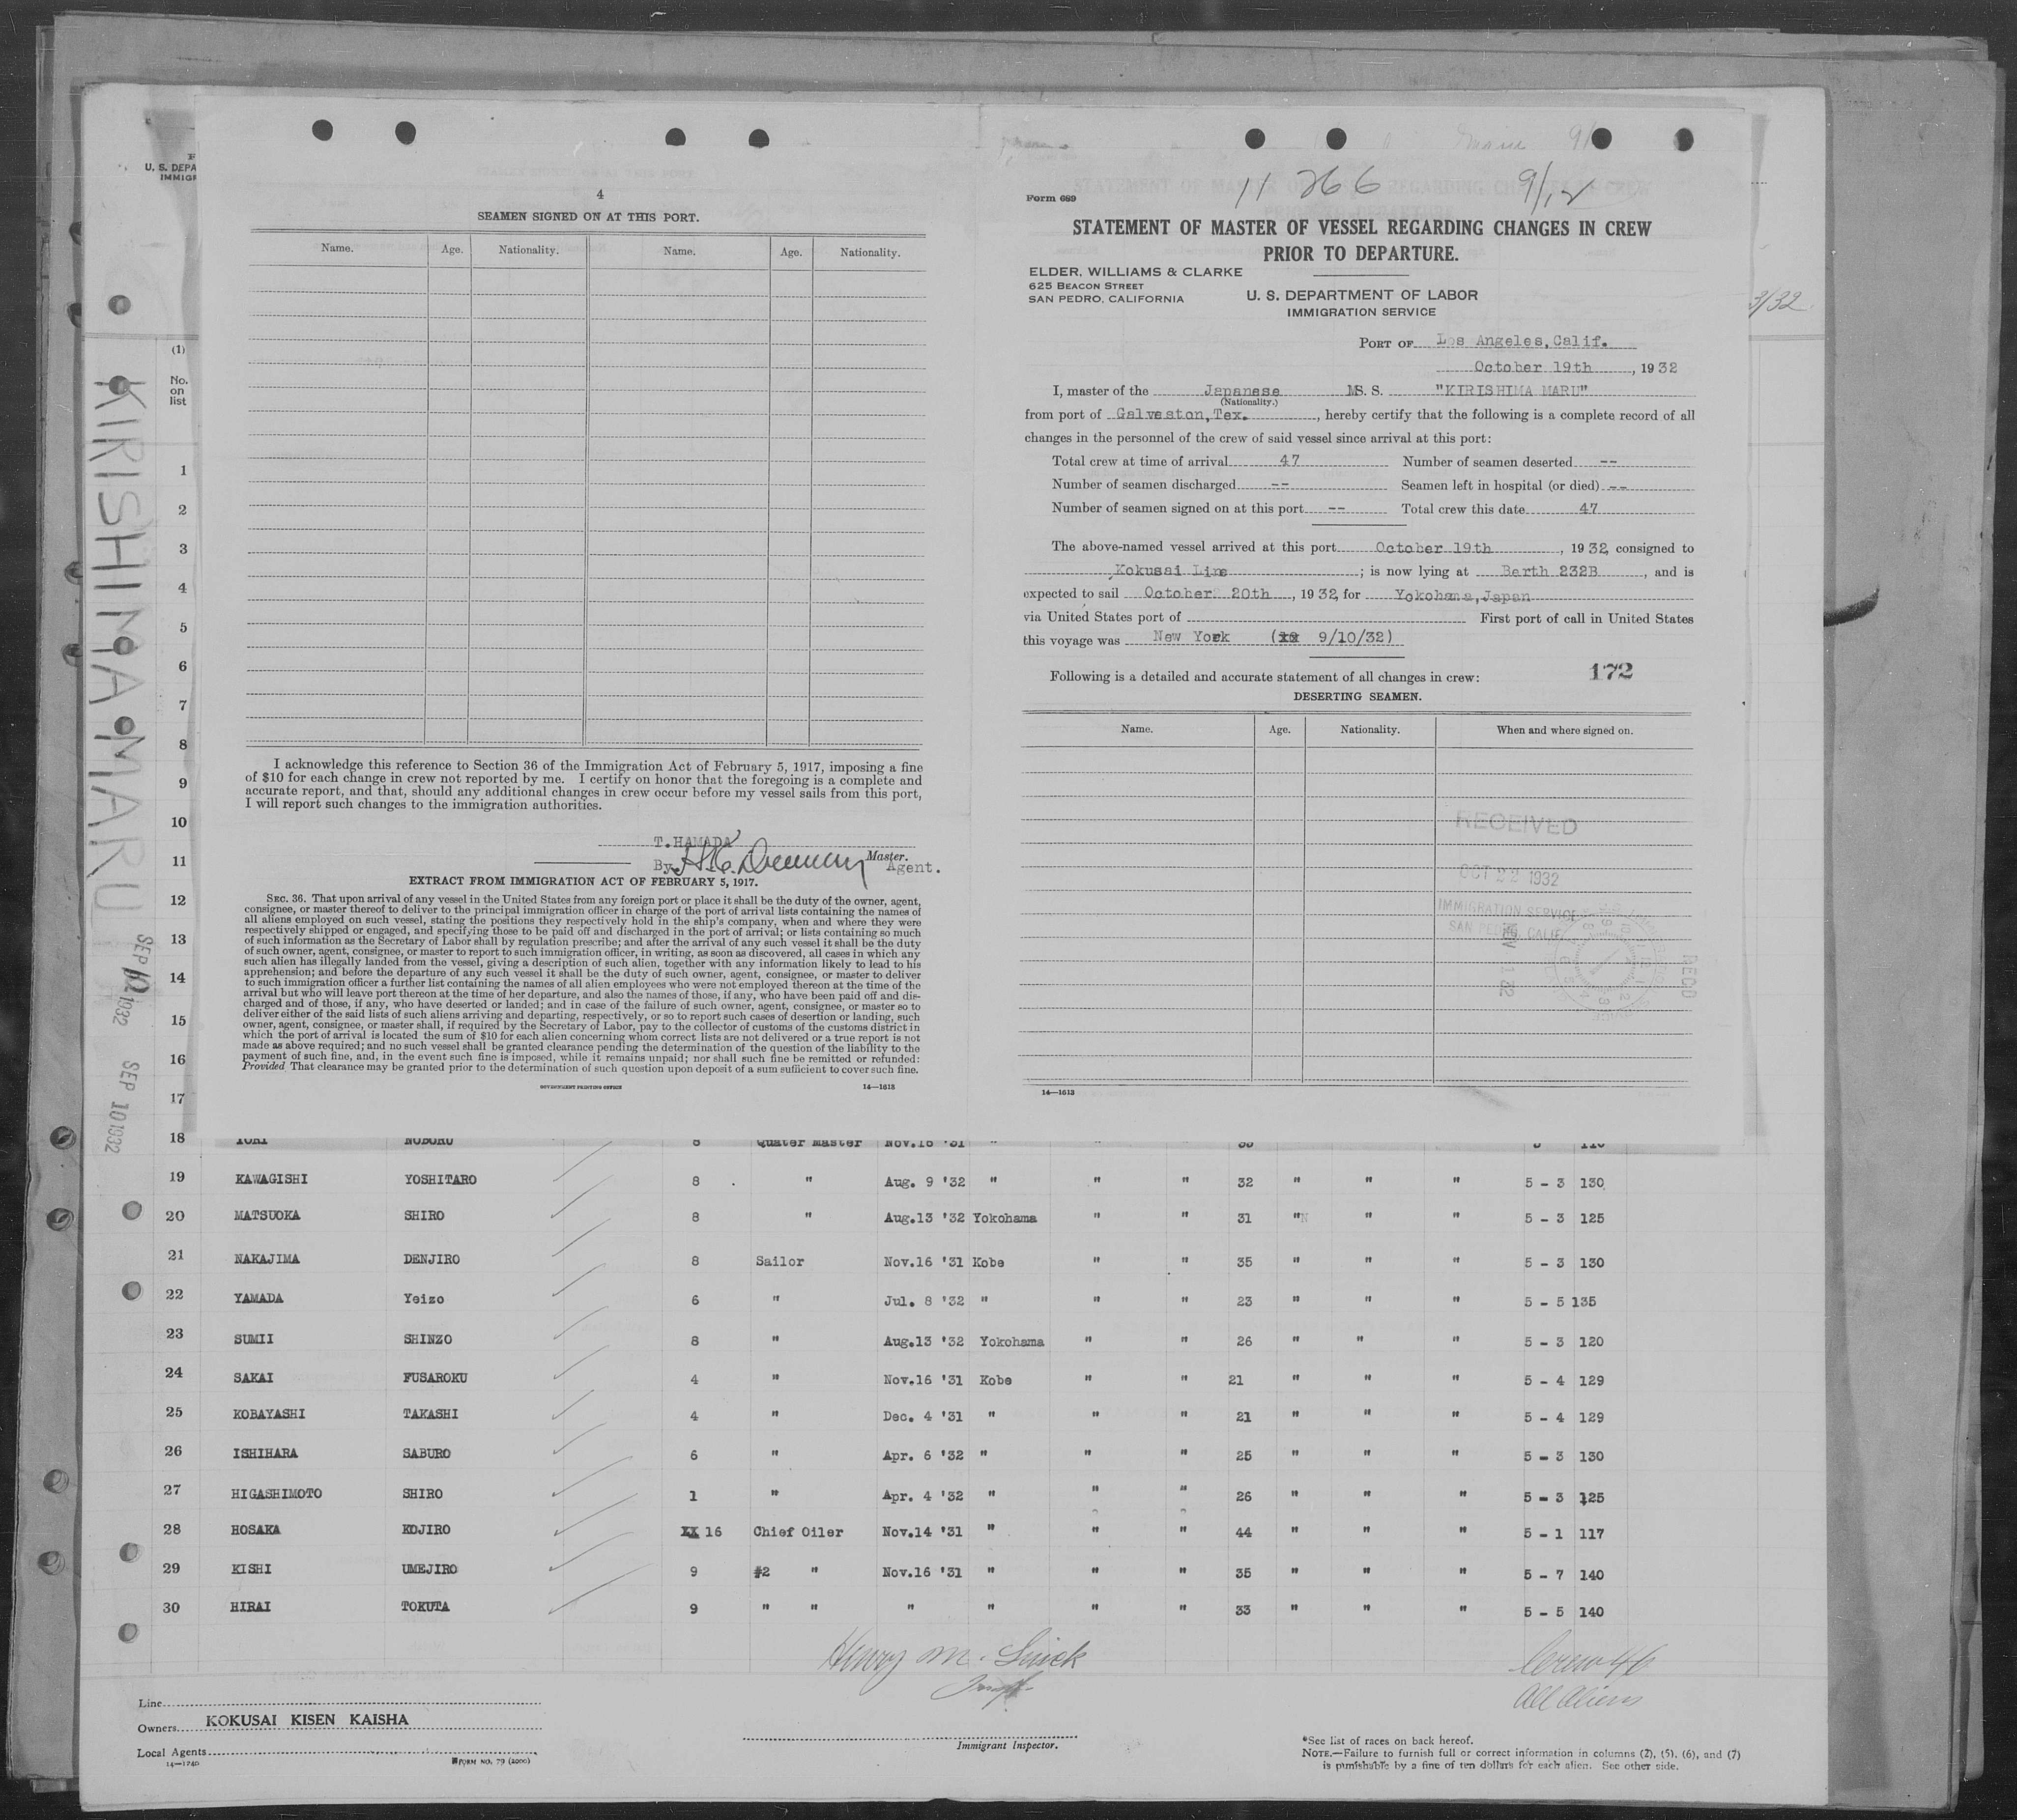 U. S. DEPA
IMMIG
4
SEAMEN SIGNED ON AT THIS PORT.
Name. Age. Nationality. Name. Age. Nationality.
I acknowledge this reference to Section 36 of the Immigration Act of February 5, 1917, imposing a fine
of $10 for each change in crew not reported by me. I certify on honor that the foregoing is a complete and
accurate report, and that, should any additional changes in crew occur before my vessel sails from this port,
I will report such changes to the immigration authorities.
T.HAMADA
Master.
By Agent.
EXTRACT FROM IMMIGRATION ACT OF FEBRUARY 5, 1917.
SEC. 36. That upon arrival of any vessel in the United States from any foreign port or place it shall be the duty of the owner, agent,
consignee, or master thereof to deliver to the principal immigration officer in charge of the port of arrival lists containing the names of
all aliens employed on such vessel, stating the positions they respectively hold in the ship's company, when and where they were
respectively shipped or engaged, and specifying those to be paid off and discharged in the port of arrival; or lists containing so much
of such information as the Secretary of Labor shall by regulation prescribe; and after the arrival of any such vessel it shall be the duty
of such owner, agent, consignee, or master to report to such immigration officer, in writing, as soon as discovered, all cases in which any
such alien has illegally landed from the vessel, giving a description of such alien, together with any information likely to lead to his
apprehension; and before the departure of any such vessel it shall be the duty of such owner, agent, consignee, or master to deliver
to such immigration officer a further list containing the names of all alien employees who were not employed thereon at the time of the
arrival but who will leave port thereon at the time of her departure, and also the names of those, if any, who have been paid off and dis-
charged and of those, if any, who have deserted or landed; and in case of the failure of such owner, agent, consignee, or master so to
deliver either of the said lists of such aliens arriving and departing, respectively, or so to report such cases of desertion or landing, such
owner, agent, consignee, or master shall, if required by the Secretary of Labor, pay to the collector of customs of the customs district in
which the port of arrival is located the sum of $10 for each alien concerning whom correct lists are not delivered or a true report is not
made as above required; and no such vessel shall be granted clearance pending the determination of the question of the liability to the
payment of such fine, and, in the event such fine is imposed, while it remains unpaid; nor shall such fine be remitted or refunded:
Provided That clearance may be granted prior to the determination of such question upon deposit of a sum sufficient to cover such fine.
GOVERNMENT PRINTING OFFICE 14—1613
11 266 9/12
Form 689
STATEMENT OF MASTER OF VESSEL REGARDING CHANGES IN CREW
PRIOR TO DEPARTURE.
ELDER, WILLIAMS & CLARKE
625 BEACON STREET
SAN PEDRO, CALIFORNIA
U. S. DEPARTMENT OF LABOR
IMMIGRATION SERVICE
PORT OF Los Angeles,Calif.
October 19th, 1932
I, master of the Japanese MS. S. "KIRISHIMA MARU"
(Nationality.)
from port of Galveston,Tex., hereby certify that the following is a complete record of all
changes in the personnel of the crew of said vessel since arrival at this port:
Total crew at time of arrival 47 Number of seamen deserted --
Number of seamen discharged -- Seamen left in hospital (or died) --
Number of seamen signed on at this port -- Total crew this date 47
The above-named vessel arrived at this port October 19th, 1932, consigned to
Kokusai Line; is now lying at Berth 232B, and is
expected to sail October 20th, 1932, for Yokohama,Japan
via United States port of First port of call in United States
this voyage was New York ( 9/10/32)
172
Following is a detailed and accurate statement of all changes in crew:
DESERTING SEAMEN.
Name. Age. Nationality. When and where signed on.
RECEIVED
OCT 22 1932
IMMIGRATION SERVICE
SAN PEDRO, CALIF.
RECD
14—1613
3/32
KIRISHIMA MARU
SEP 10 1932
SEP 10 1932
(1)
No.
on
list
1
2
3
4
5
6
7
8
9
10
11
12
13
14
15
16
17
18 NOBORU 8 Quater Master Nov.16 '31 "
19 KAWAGISHI YOSHITARO 8 " Aug. 9 '32 " " " 32 " " " 5 - 3 130
20 MATSUOKA SHIRO 8 " Aug.13 '32 Yokohama " " 31 " " " 5 - 3 125
21 NAKAJIMA DENJIRO 8 Sailor Nov.16 '31 Kobe " " 35 " " " 5 - 3 130
22 YAMADA Yeizo 6 " Jul. 8 '32 " " " 23 " " " 5 - 5 135
23 SUMII SHINZO 8 " Aug.13 '32 Yokohama " " 26 " " " 5 - 3 120
24 SAKAI FUSAROKU 4 " Nov.16 '31 Kobe " " 21 " " " 5 - 4 129
25 KOBAYASHI TAKASHI 4 " Dec. 4 '31 " " " 21 " " " 5 - 4 129
26 ISHIHARA SABURO 6 " Apr. 6 '32 " " " 25 " " " 5 - 3 130
27 HIGASHIMOTO SHIRO 1 " Apr. 4 '32 " " " 26 " " " 5 - 3 125
28 HOSAKA KOJIRO 16 Chief Oiler Nov.14 '31 " " " 44 " " " 5 - 1 117
29 KISHI UMEJIRO 9 #2 " Nov.16 '31 " " " 35 " " " 5 - 7 140
30 HIRAI TOKUTA 9 " " " " " " 33 " " " 5 - 5 140
Henry M.
Crew 46
All Aliens
Line
Owners KOKUSAI KISEN KAISHA
Local Agents
14—1240
FORM NO. 79 (2000)
Immigrant Inspector.
*See list of races on back hereof.
NOTE.—Failure to furnish full or correct information in columns (2), (5), (6), and (7)
is punishable by a fine of ten dollars for each alien. See other side.